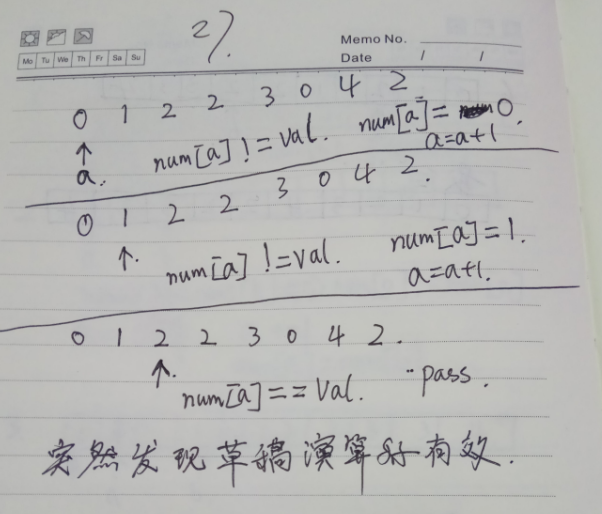 2).
Memo No.
Mo Tu We Th Fr Sa Su
Date / /
0 1 2 2 3 0 4 2
↑
a.
num[a] != val. num[a] = 0.
a=a+1
0 1 2 2 3 0 4 2.
↑.
num[a] != val. num[a]=1.
a=a+1.
0 1 2 2 3 0 4 2.
↑.
num[a]==Val. pass.
突然发现草稿演算好有效.